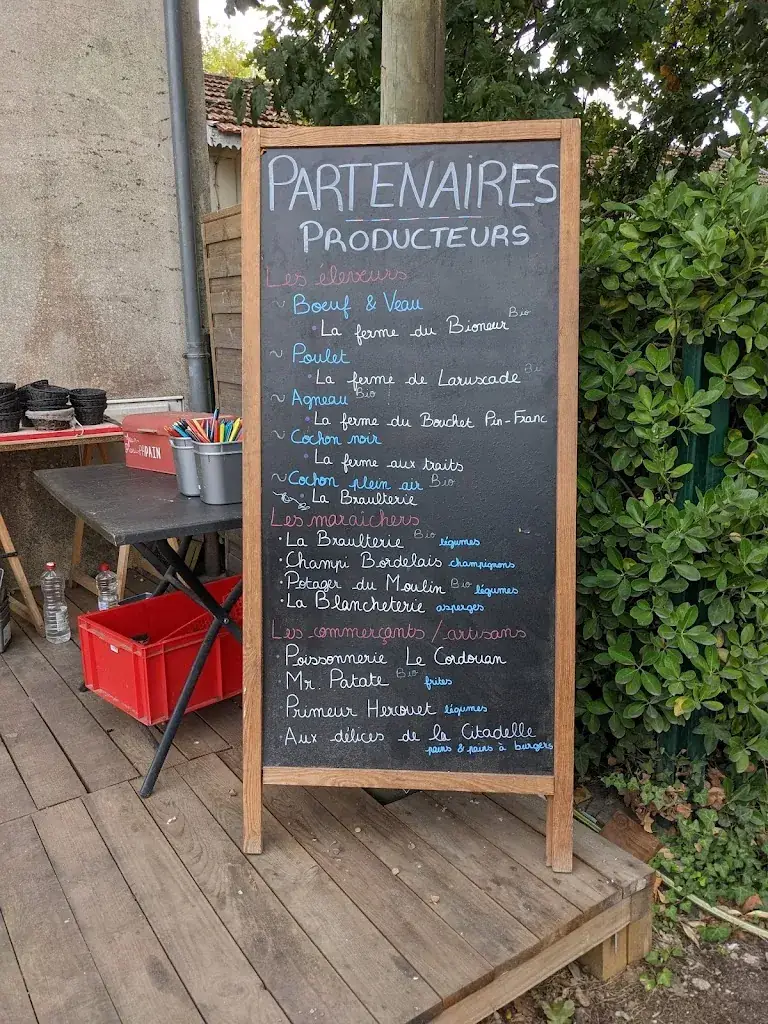 PARTENAIRES
PRODUCTEURS
Les éleveurs
~ Boeuf & Veau
La ferme du Bioneur Bio
~ Poulet
La ferme de Laruscade Bio
~ Agneau Bio
La ferme du Bouchet Pin-Franc
~ Cochon noir
La ferme aux traits
~ Cochon plein air Bio
La Braulterie
Les maraichers
· La Braulterie Bio légumes
· Champi Bordelais champignons
· Potager du Moulin Bio légumes
· La Blancheterie asperges
Les commerçants / artisans
· Poissonnerie Le Cordouan
· Mr. Patate Bio frites
Primeur Hercouet légumes
· Aux délices de la Citadelle
pains & pains à burgers
PAIN